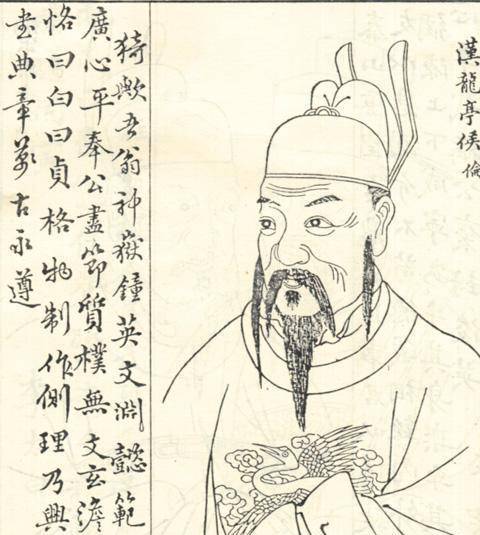 漢龍亭侯倫
猗歟吾翁神嶽鐘英文淵懿範
廣心平奉公盡節質樸無文玄澹
恪曰白曰貞格物制作側理乃興
書典章萬古永遵